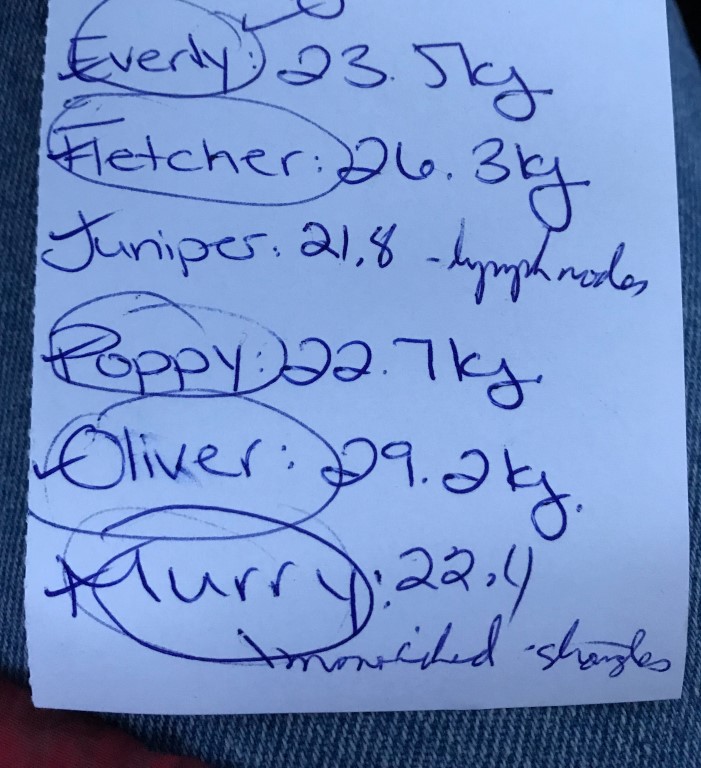 Everly: 23.5kg
Fletcher: 26.3kg
Juniper: 21.8 - lymph nodes
Poppy: 22.7kg
Oliver: 29.2kg.
: 22.4
monorchid -